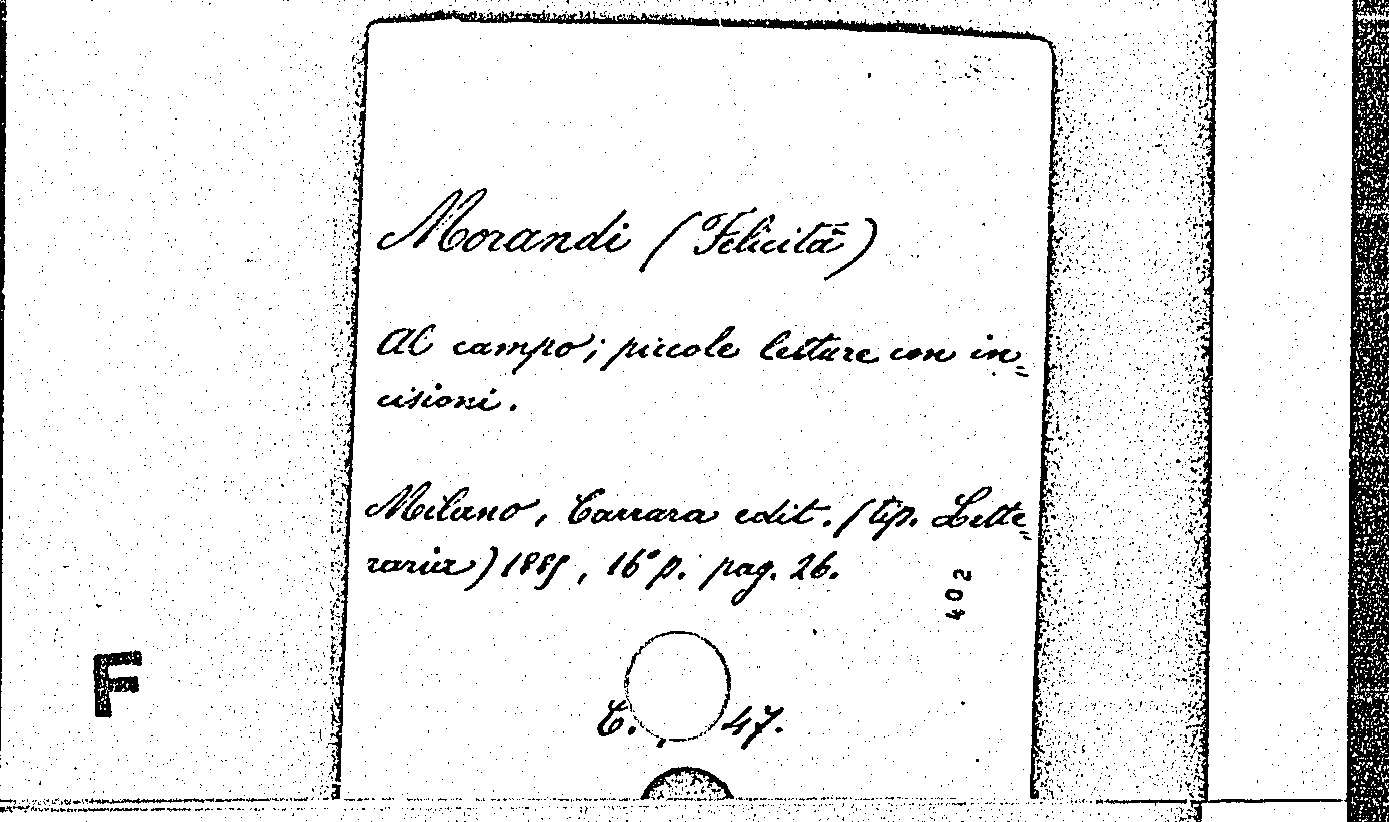 Morandi (Felicità)
Al campo; piccole letture con in=
cisioni.
Milano, Carrara edit. (tip. Lette=
raria) 1885, 16° p. pag. 26.
402
F
C. 47.